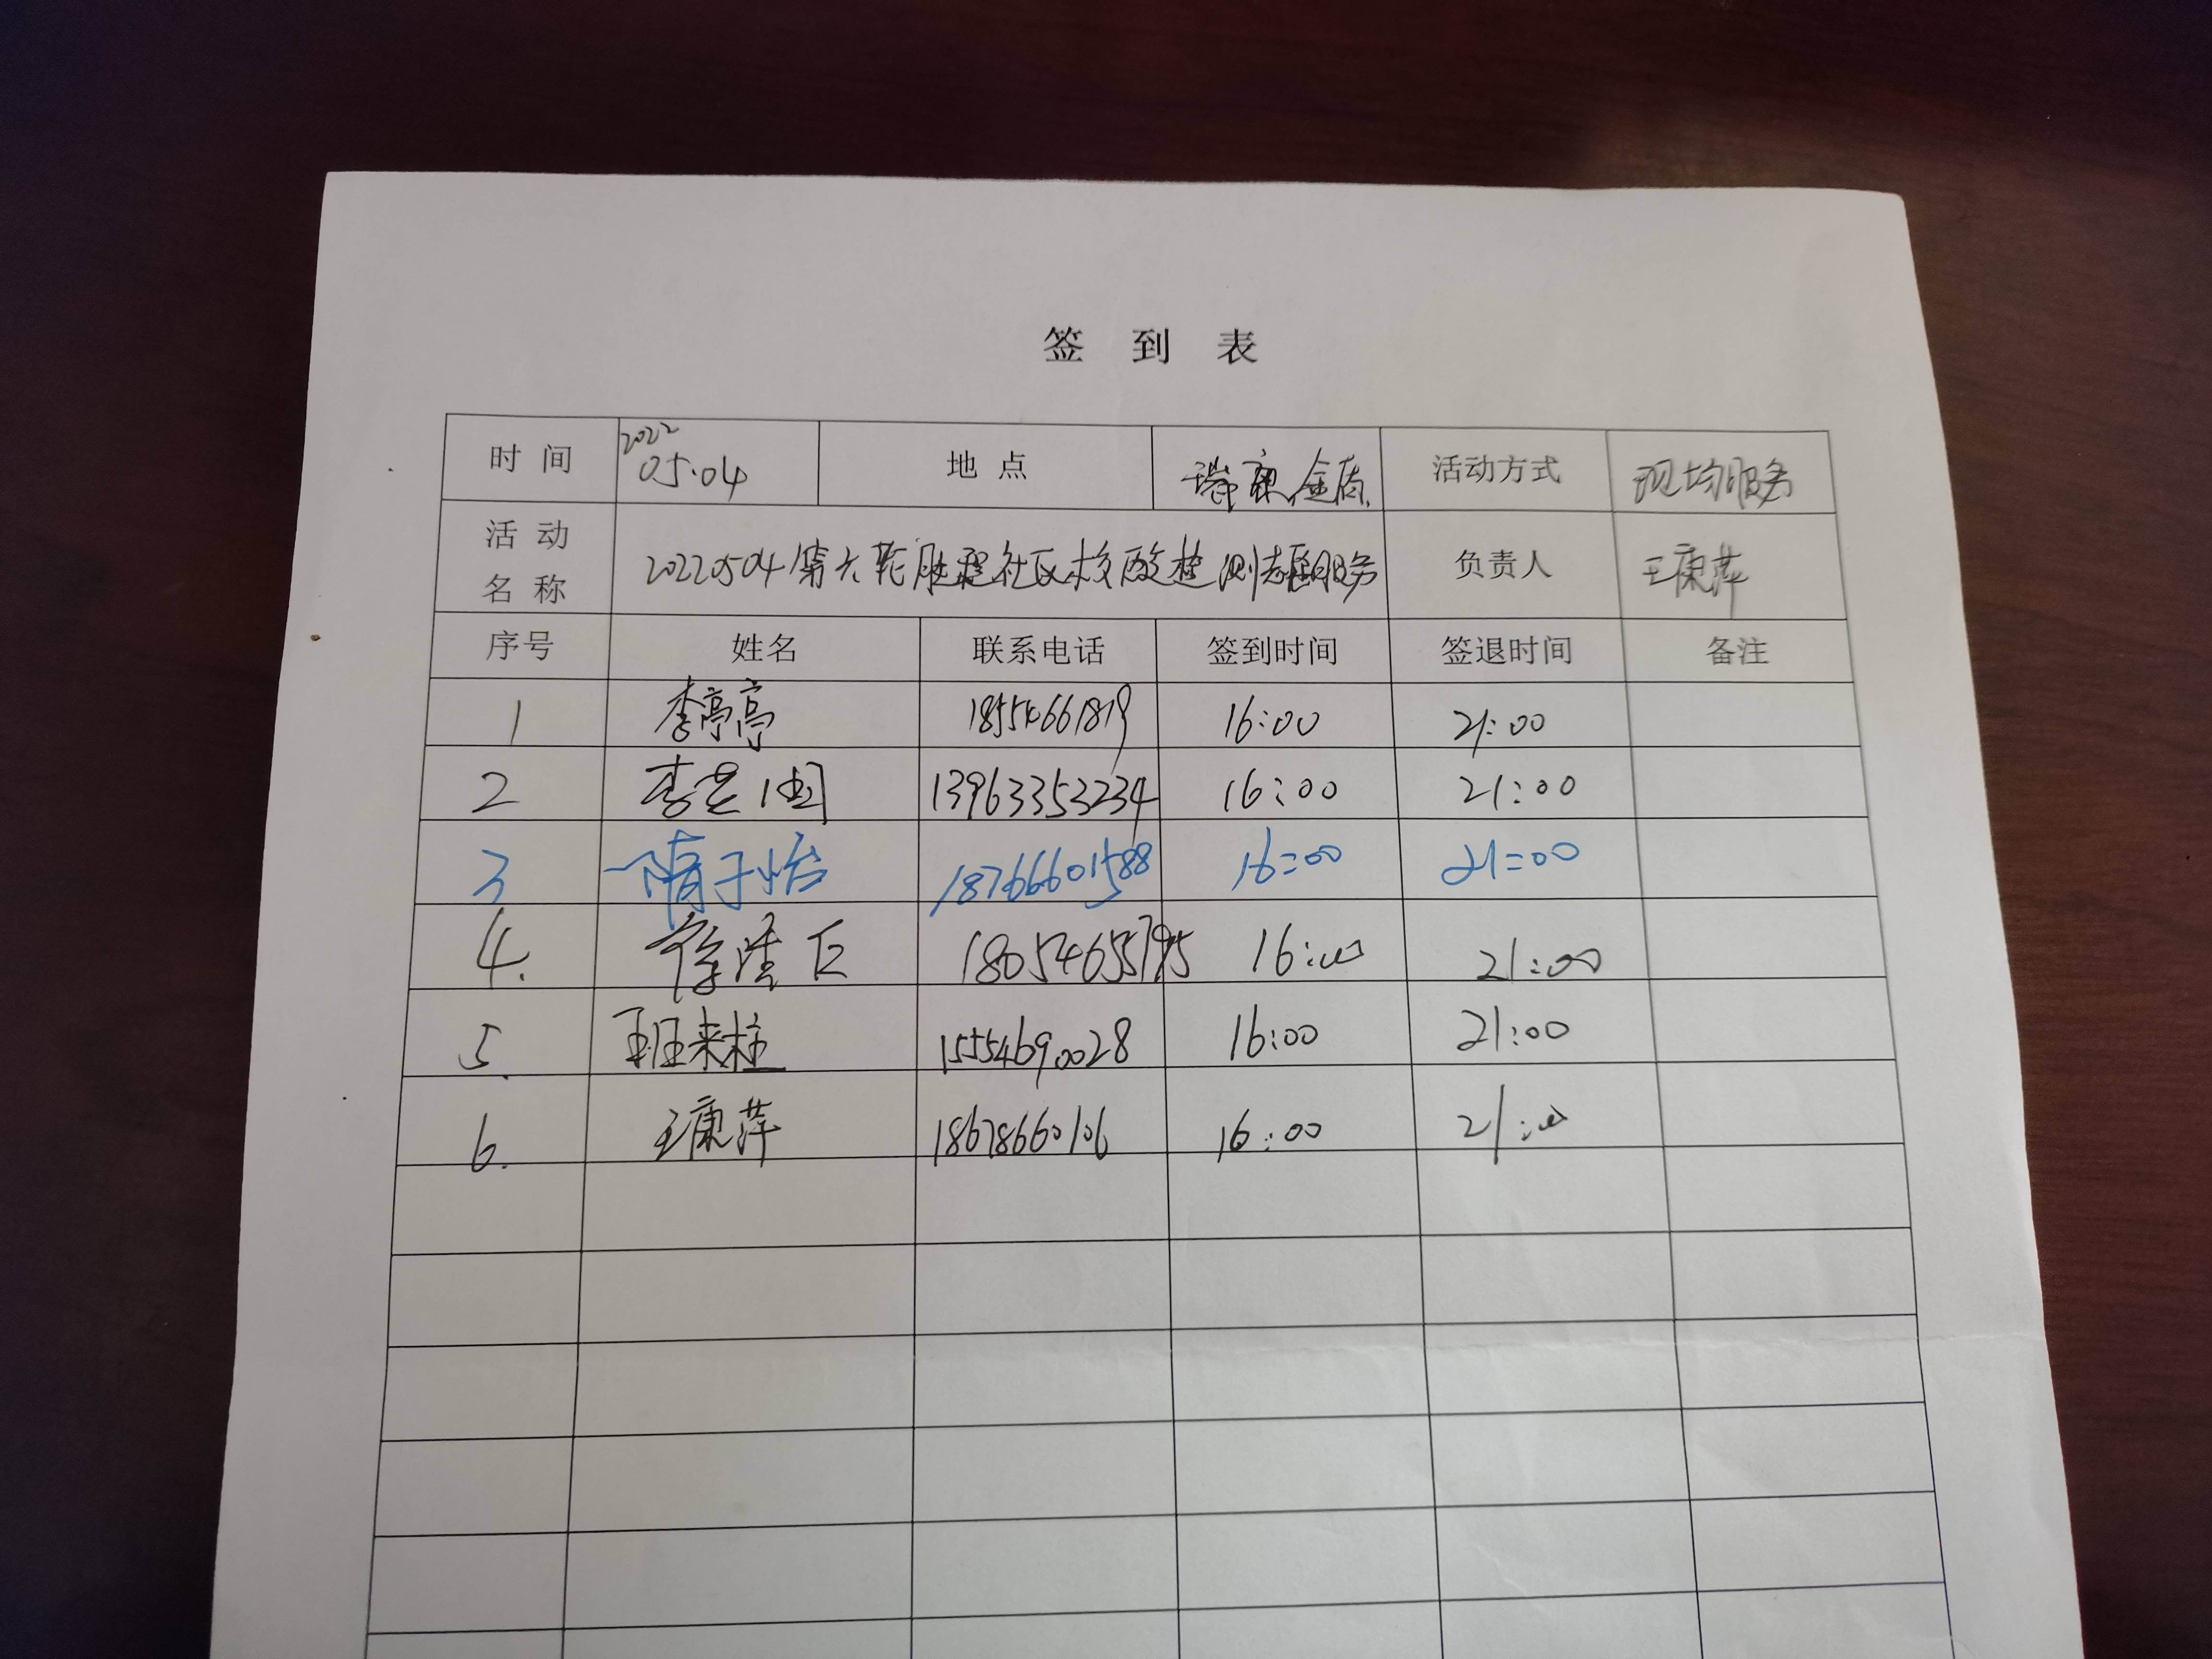 签 到 表
时 间 2022 05.04 地 点 瑞康 活动方式 现场服务
活 动 名 称 20220504第六轮胜利社区核酸检测志愿服务 负责人 王康萍
序号 姓名 联系电话 签到时间 签退时间 备注
1 李亭亭 18554661819 16:00 21:00
2 李 13963353234 16:00 21:00
3 隋子怡 18766601588 16:00 21:00
4. 16:00 21:00
5. 班来柱 15554690028 16:00 21:00
6. 王康萍 18678660106 16:00 21:00